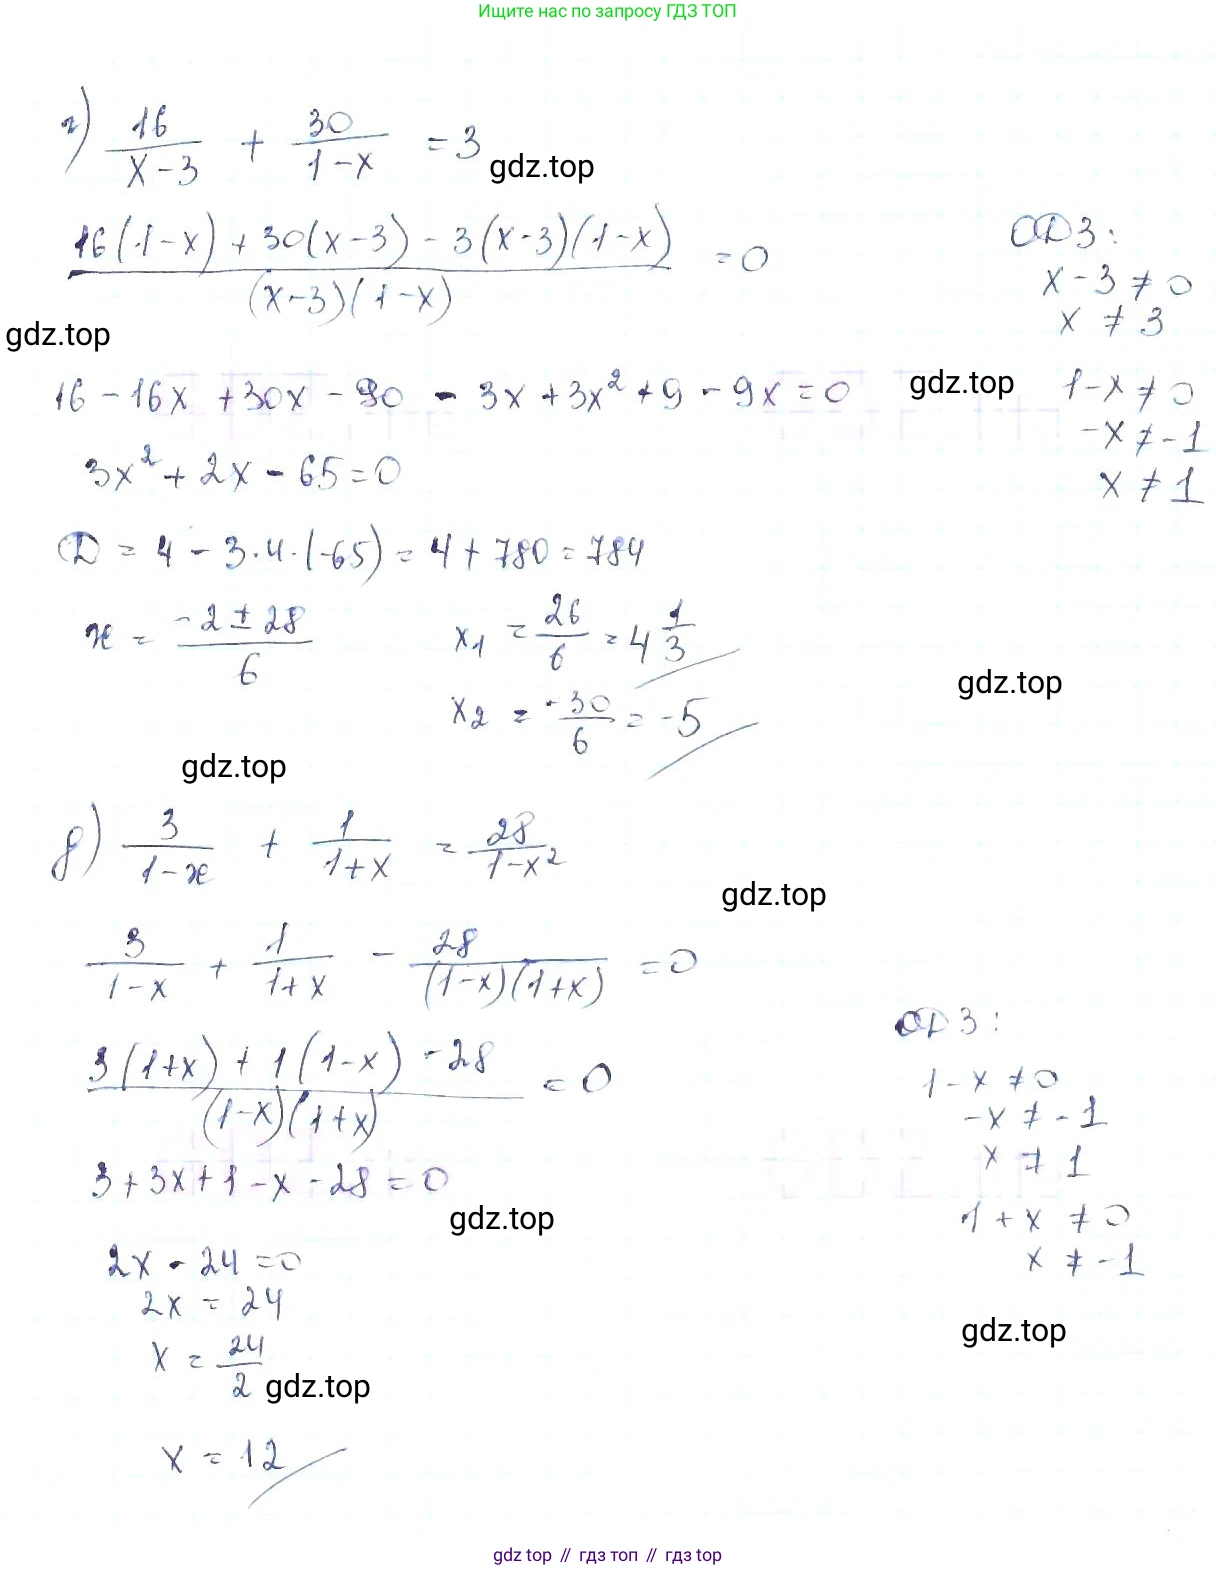 Ищите нас по запросу ГДЗ ТОП
г) 16/(x-3) + 30/(1-x) = 3
gdz.top
(16(1-x) + 30(x-3) - 3(x-3)(1-x))/((x-3)(1-x)) = 0
ОДЗ:
x-3 ≠ 0
x ≠ 3
gdz.top
16 - 16x + 30x - 90 - 3x + 3x² + 9 - 9x = 0
gdz.top
1-x ≠ 0
-x ≠ -1
x ≠ 1
3x² + 2x - 65 = 0
D = 4 - 3·4·(-65) = 4 + 780 = 784
x = (-2 ± 28)/6
x₁ = 26/6 = 4 1/3
x₂ = -30/6 = -5
gdz.top
gdz.top
д) 3/(1-x) + 1/(1+x) = 28/(1-x²)
gdz.top
3/(1-x) + 1/(1+x) - 28/((1-x)(1+x)) = 0
(3(1+x) + 1(1-x) - 28)/((1-x)(1+x)) = 0
ОДЗ:
1-x ≠ 0
-x ≠ -1
x ≠ 1
1+x ≠ 0
x ≠ -1
3 + 3x + 1 - x - 28 = 0
gdz.top
2x - 24 = 0
2x = 24
gdz.top
x = 24/2
gdz.top
x = 12
gdz top // гдз топ // гдз top